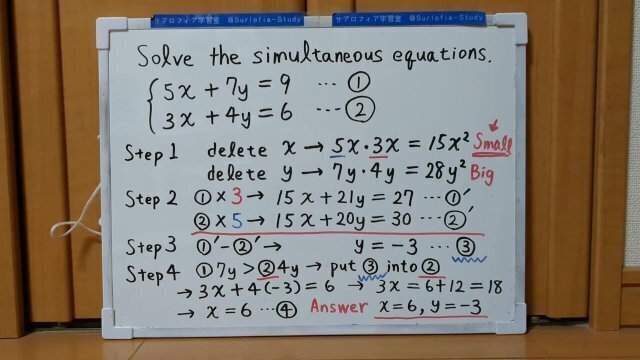 サアロフィア学習室 @Surlofia-Study サアロフィア学習室 @Surlofia-Study
Solve the simultaneous equations.
5x + 7y = 9 ... ①
3x + 4y = 6 ... ②
Step 1 delete x → 5x・3x = 15x² Small
delete y → 7y・4y = 28y² Big
Step 2 ① × 3 → 15x + 21y = 27 ... ①′
② × 5 → 15x + 20y = 30 ... ②′
Step 3 ①′ - ②′ → y = -3 ... ③
Step 4 ① 7y > ② 4y → put ③ into ②
→ 3x + 4(-3) = 6 → 3x = 6 + 12 = 18
→ x = 6 ... ④ Answer x = 6, y = -3